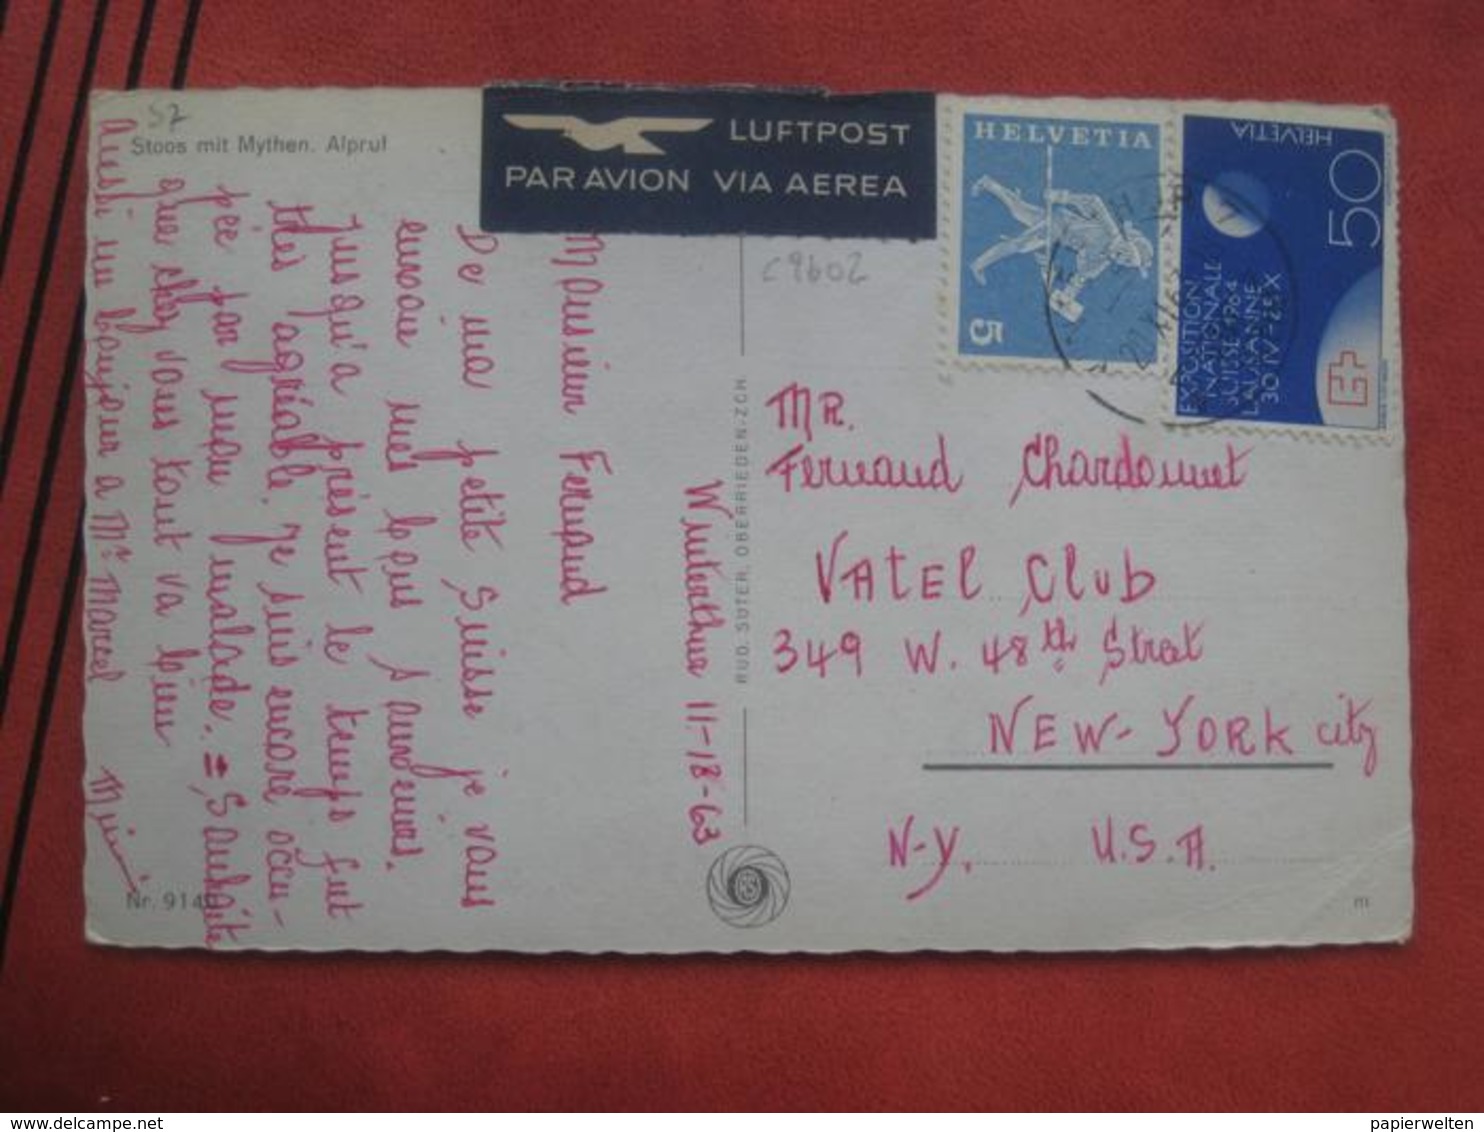 57
Stoos mit Mythen. Alpruf
LUFTPOST
PAR AVION VIA AEREA
HELVETIA
5
HELVETIA
50
EXPOSITION
NATIONALE
SUISSE 1964
LAUSANNE
30 IV - 25 X
c 9602
Winterthur 11-18-63
Monsieur Fernand
De ma petite Suisse je vous
envoie mes bons souvenirs.
Jusqu'à présent le temps fut
très agréable. Je suis encore occu-
pée par mon malade. = Souhaite
que chez vous tout va bien
aussi un bonjour a Mr Marcel
RUD. SUTER, OBERRIEDEN-ZCH.
RS
MR.
Fernand Chardonnet
VATEL Club
349 W. 48th Street
NEW-YORK city
N-Y. U.S.A.
Nr. 914
m
papierwelten
delcampe.net